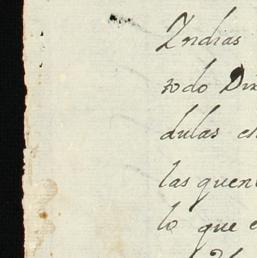 Yndias
todo Di
dulas es
las quent
lo que e